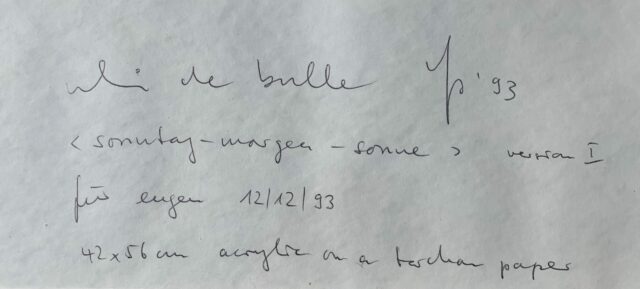 de bulle '93
< sonntag-morgen-sonne > version I
für eugen 12/12/93
42x56 cm acrylic on a paper